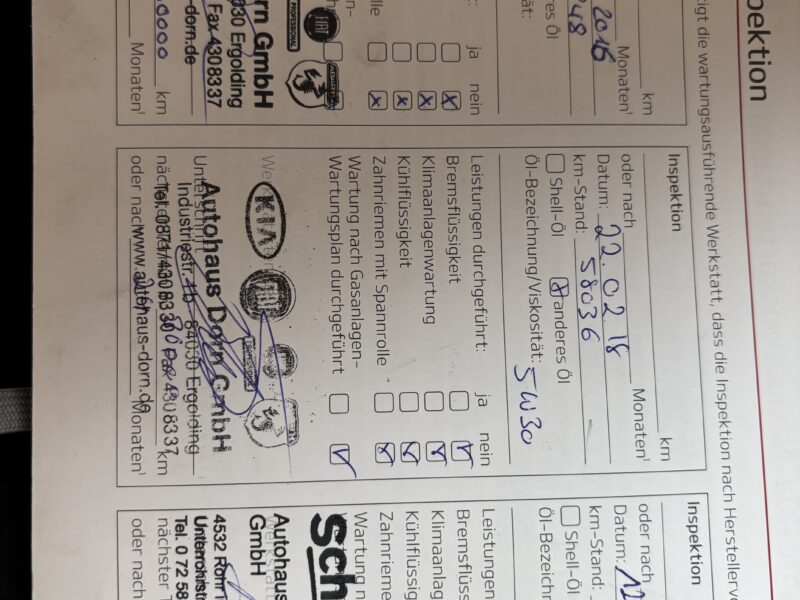 pektion
tigt die wartungsausführende Werkstatt, dass die Inspektion nach Herstellerv
km
Monaten¹
2016
48
anderes Öl
ität:
ja nein
rn GmbH
030 Ergolding
Fax 4308337
-dorn.de
PROFESSIONAL
FIAT
ABARTH
0000 km
Monaten¹
Inspektion
km
oder nach Monaten¹
Datum: 22.02.18
km-Stand: 58036
Shell-Öl anderes Öl
Öl-Bezeichnung/Viskosität: 5W30
Leistungen durchgeführt: ja nein
Bremsflüssigkeit
Klimaanlagenwartung
Kühlflüssigkeit
Zahnriemen mit Spannrolle
Wartung nach Gasanlagen-
Wartungsplan durchgeführt
KIA
FIAT
Autohaus Dorn GmbH
Unterschrift
Industriestr. 1b 84030 Ergolding
Tel. 0871/4308330 Fax 4308337
km
www.autohaus-dorn.de
oder nach Monaten¹
Inspektion
oder nach
Datum: 12
km-Stand:
Shell-Öl
Öl-Bezeichn
Leistungen
Bremsflüss
Klimaanlag
Kühlflüssig
Zahnrieme
Wartung n
Sch
Autohaus
GmbH
4532 Rohr
Tel. 0 72 58
nächster T
oder nach